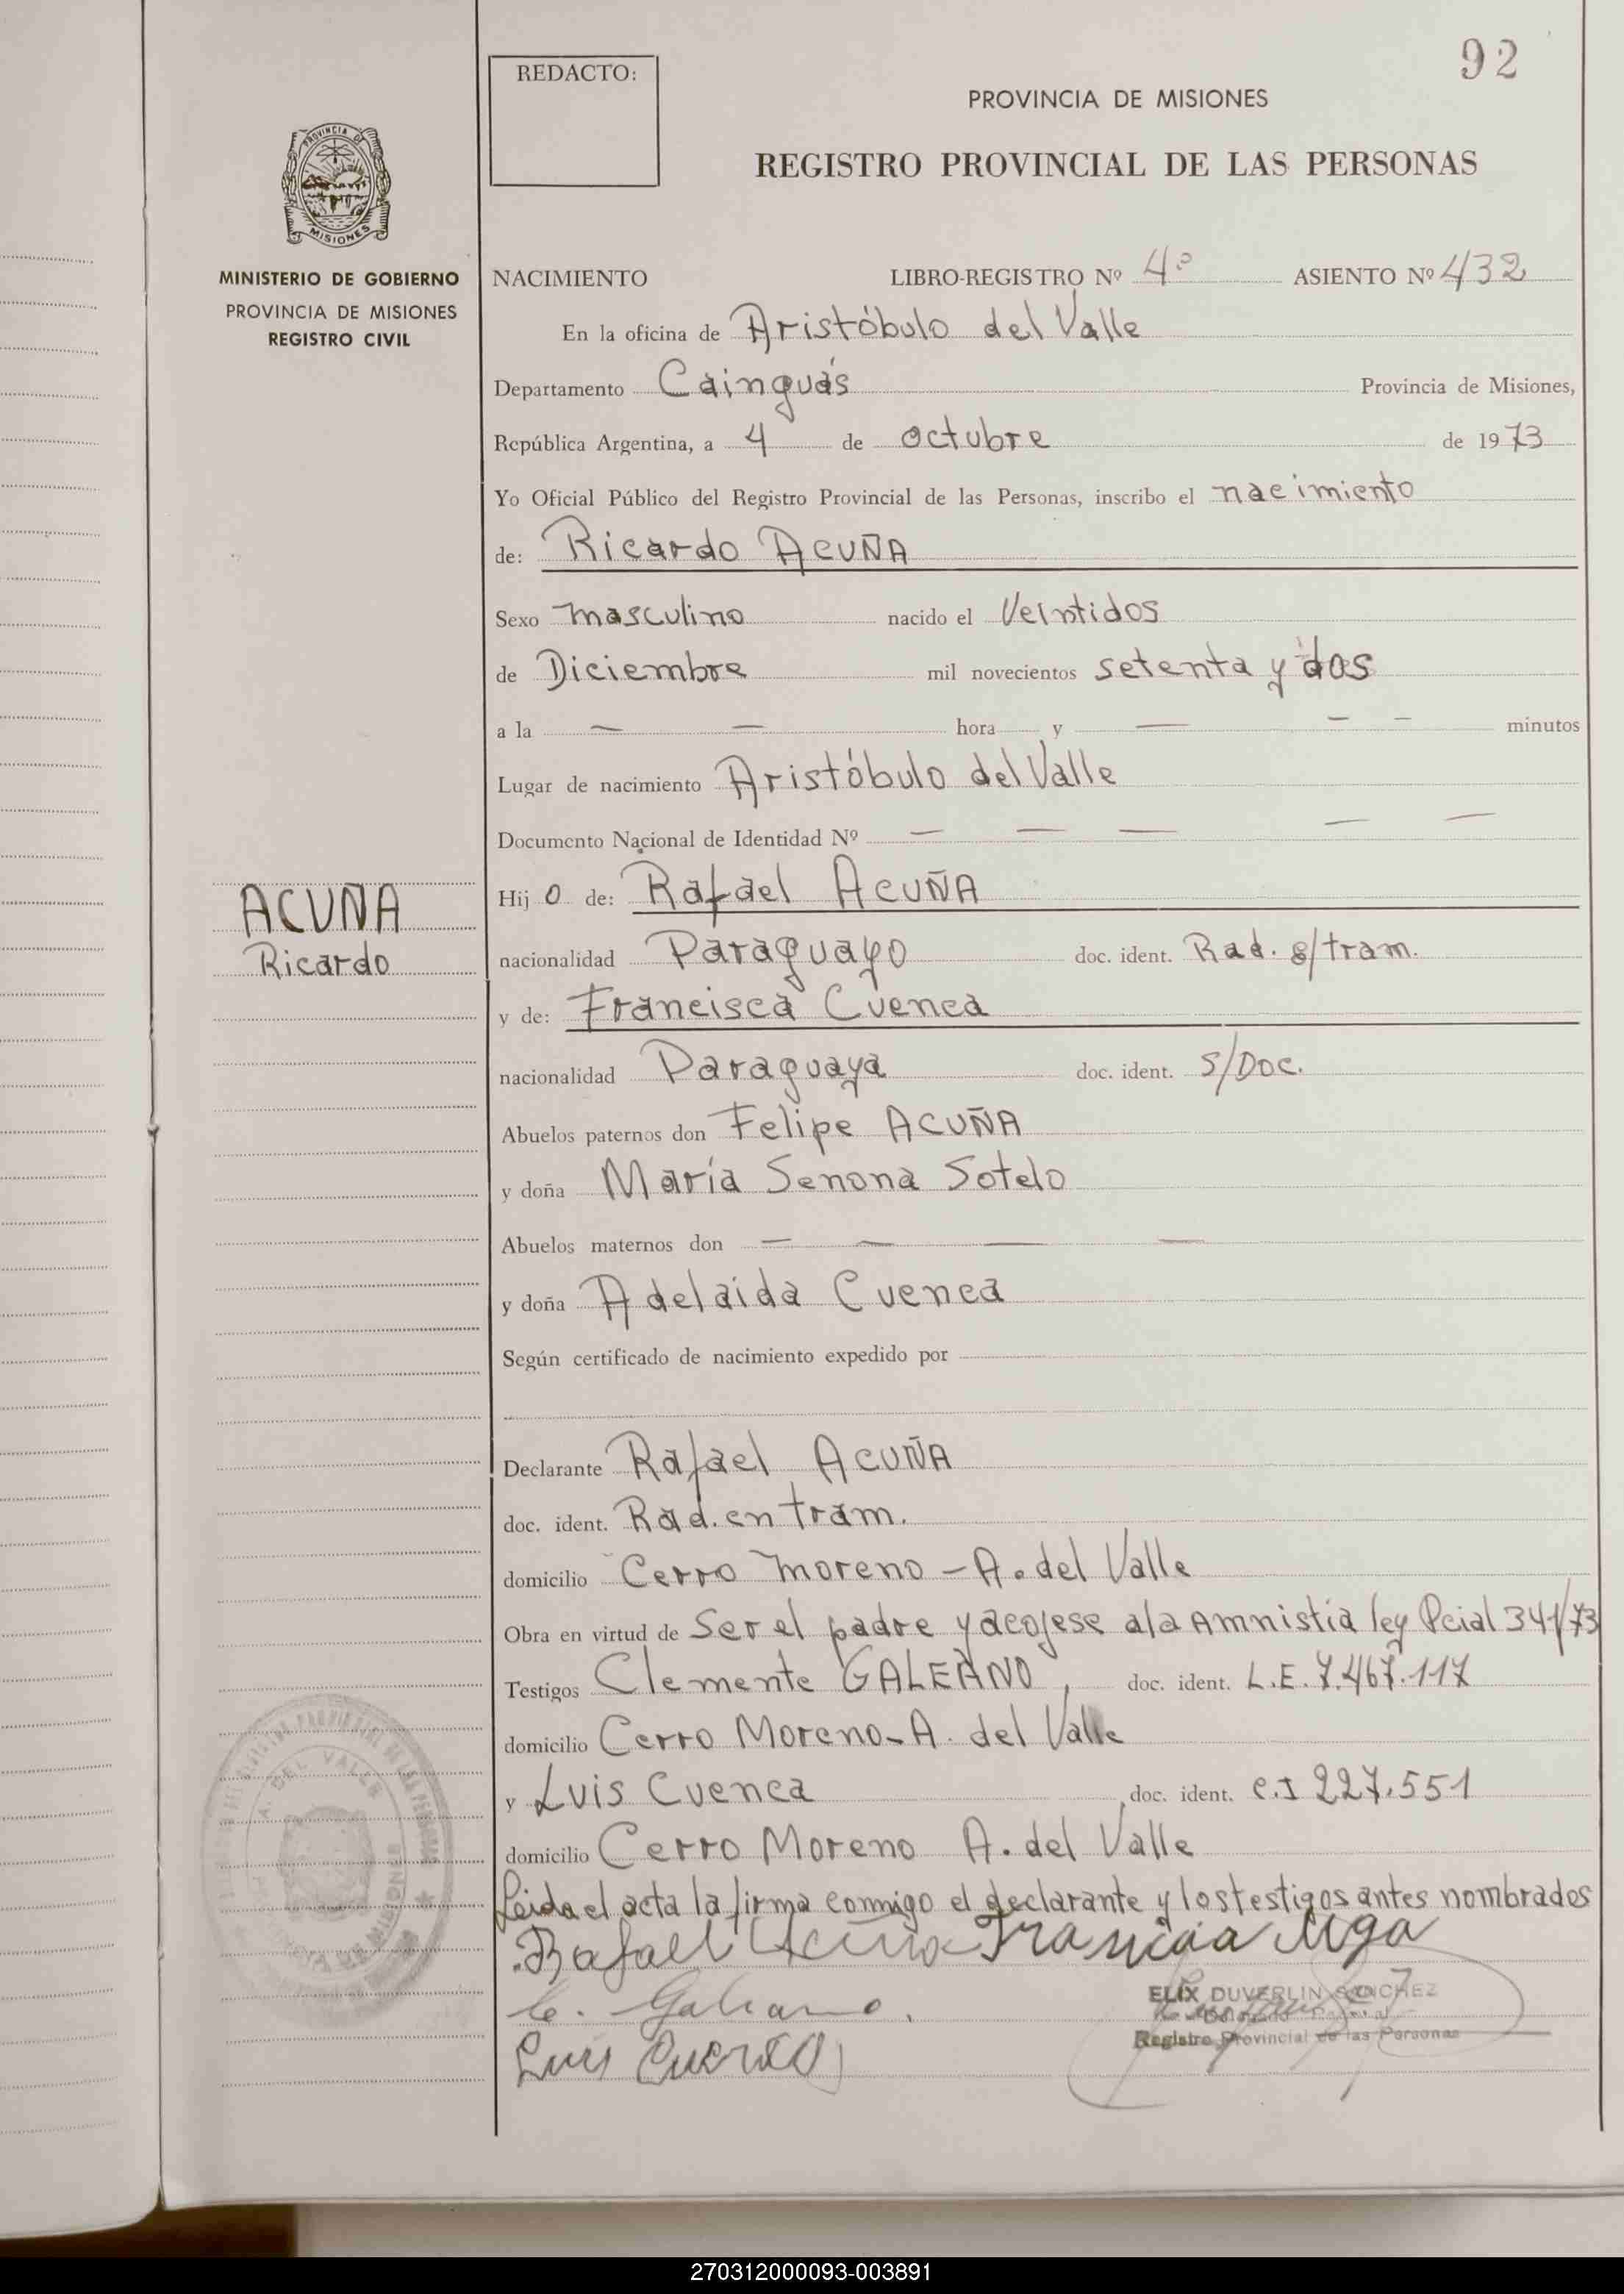 92
REDACTO:
PROVINCIA DE MISIONES
REGISTRO PROVINCIAL DE LAS PERSONAS
PROVINCIA DE
MISIONES
MINISTERIO DE GOBIERNO
PROVINCIA DE MISIONES
REGISTRO CIVIL
NACIMIENTO LIBRO-REGISTRO Nº 4º ASIENTO Nº 432
En la oficina de Aristóbulo del Valle
Departamento Cainguás Provincia de Misiones,
República Argentina, a 4 de octubre de 1973
Yo Oficial Público del Registro Provincial de las Personas, inscribo el nacimiento
de: Ricardo ACUÑA
Sexo masculino nacido el Veintidos
de Diciembre mil novecientos setenta y dos
a la — — hora y — — — minutos
Lugar de nacimiento Aristóbulo del Valle
Documento Nacional de Identidad Nº — — — — —
ACUÑA
Ricardo
Hij o de: Rafael ACUÑA
nacionalidad Paraguayo doc. ident. Rad. e/tram.
y de: Francisca Cuenca
nacionalidad Paraguaya doc. ident. S/Doc.
Abuelos paternos don Felipe ACUÑA
y doña María Senona Sotelo
Abuelos maternos don — — — —
y doña Adelaida Cuenca
Según certificado de nacimiento expedido por
Declarante Rafael ACUÑA
doc. ident. Rad. en tram.
domicilio Cerro Moreno - A. del Valle
Obra en virtud de Ser el padre y acojese a la Amnistía ley Pcial 341/73
Testigos Clemente GALEANO, doc. ident. L.E. 7.467.117
domicilio Cerro Moreno - A. del Valle
y Luis Cuenca, doc. ident. C.I 227.551
domicilio Cerro Moreno A. del Valle
Leida el acta la firma conmigo el declarante y los testigos antes nombrados
Rafael Acuña
C. Galeano.
Luis Cuenca
ELIX DUVERLIN SANCHEZ
Registro Provincial de las Personas
A. DEL VALLE
270312000093-003891